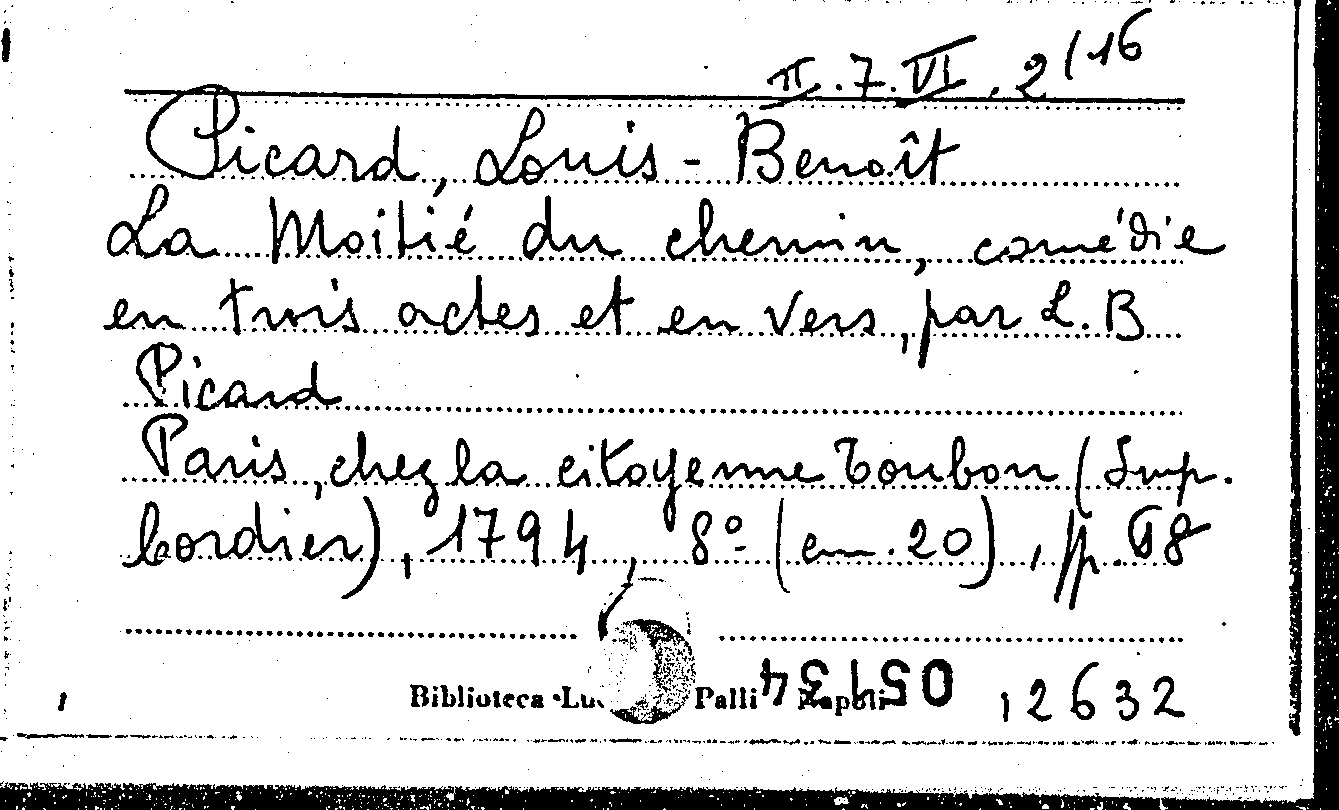 II.7.VI.2/16
Picard, Louis-Benoît
La Moitié du chemin, comédie
en trois actes et en vers, par L.B
Picard
Paris, chez la citoyenne Toubon (Imp.
Cordier), 1794, 8º (cm.20), pp. 68
Biblioteca Palli 12632